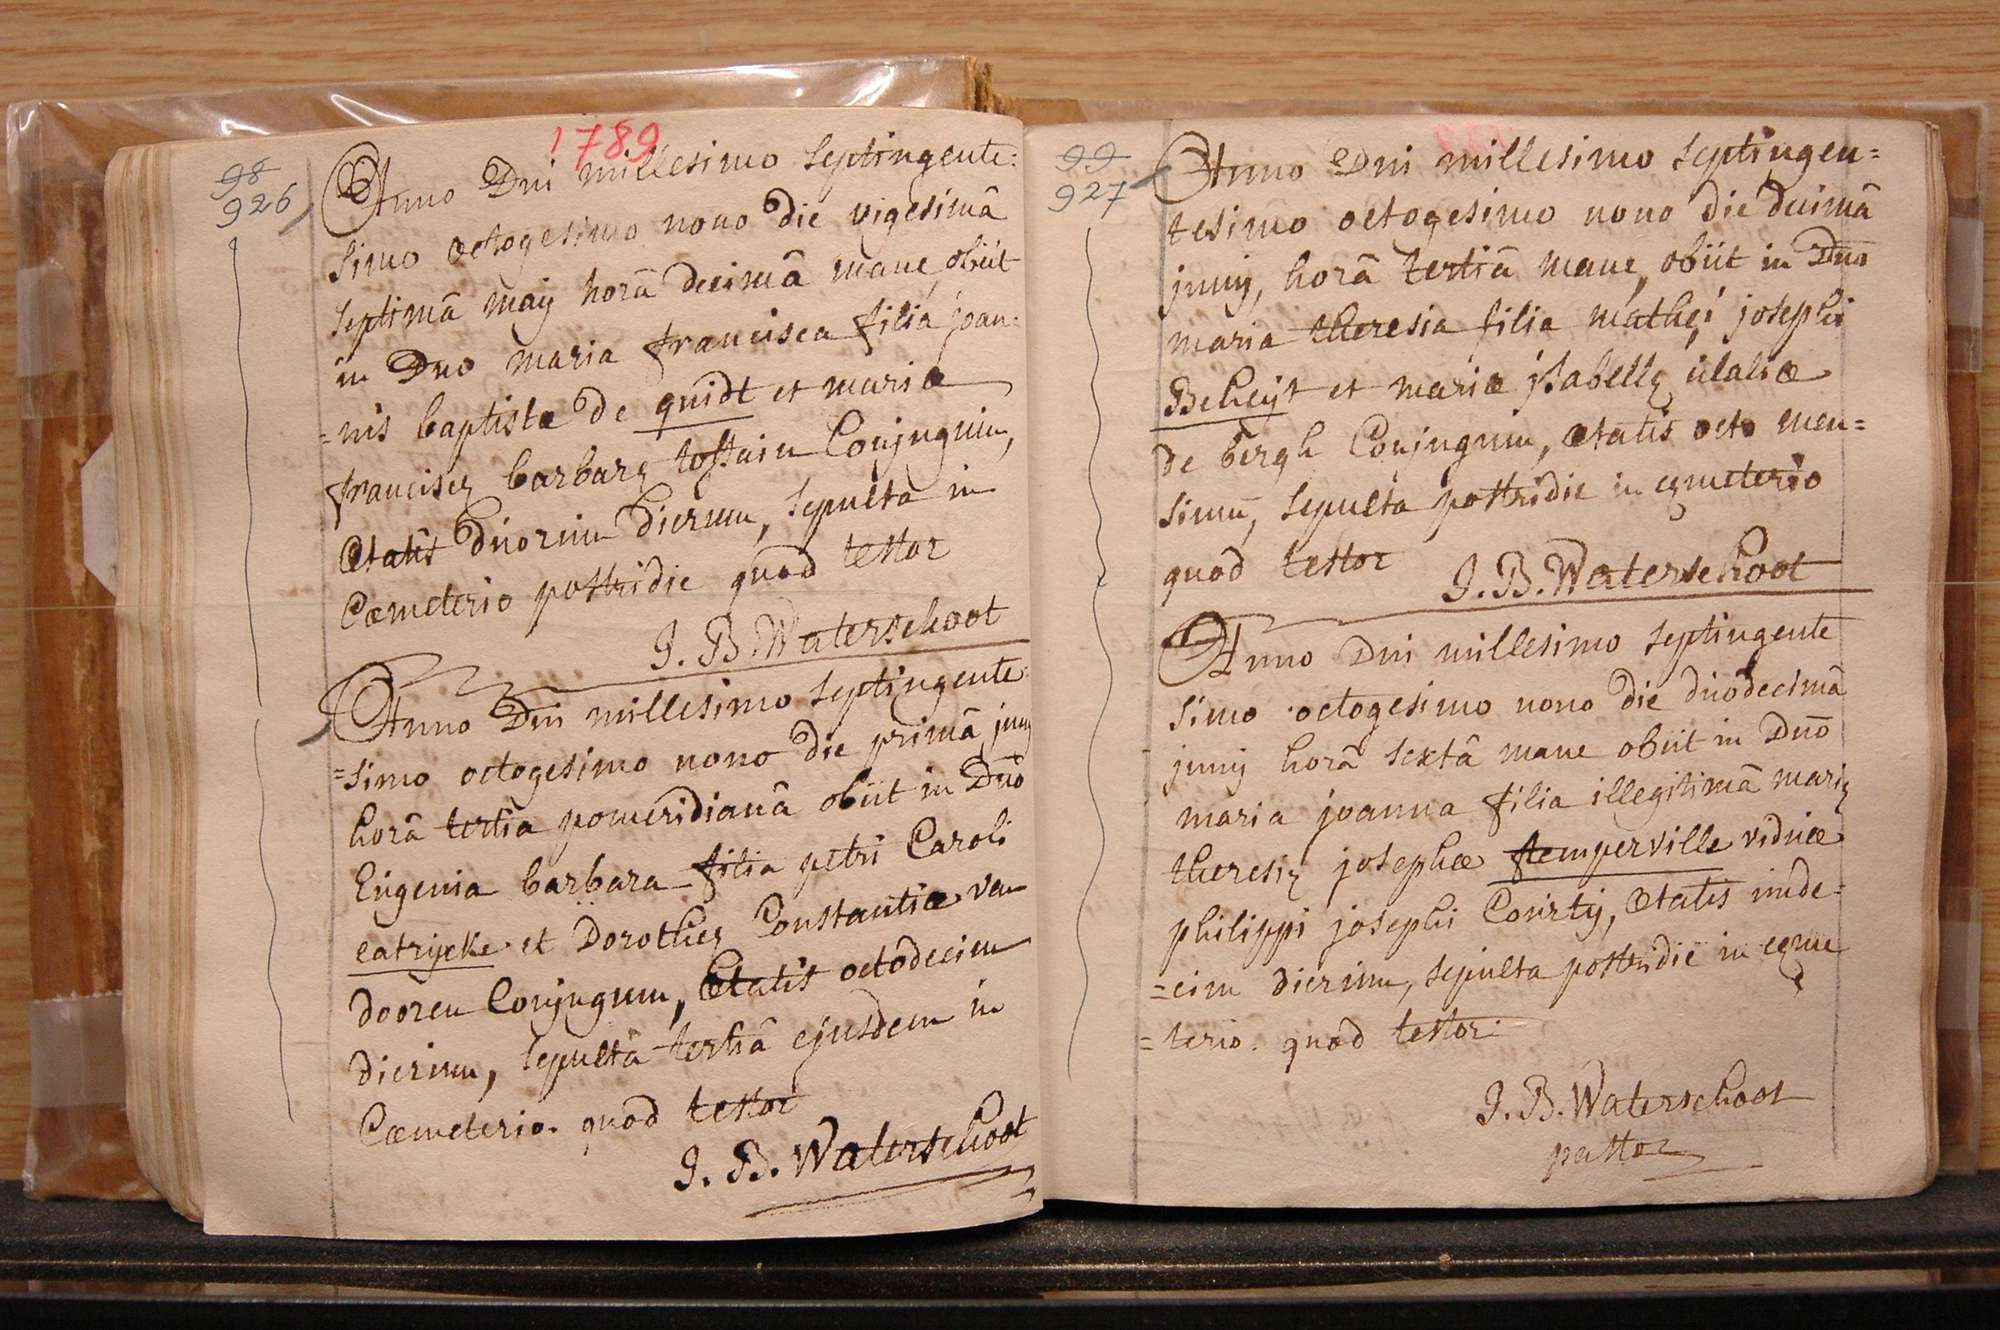 1789
98
926
Anno Dni millesimo septingente:
simo octogesimo nono die vigesimâ
septimâ maij horâ decimâ mane, obiit
in Dno maria francisca filia joan:
=nis baptistæ de quidt et mariæ
franciscę barbarę tossain Conjugum,
Ætatis duorum dierum, sepulta in
Cæmeterio postridie quod testor
J. B. Waterschoot
Anno Dni millesimo septingente
=simo octogesimo nono die primâ junij
horâ tertia pomeridianâ obiit in Dno
Eugenia barbara filia petri Caroli
catrijcke et Dorotheę Constantiæ van
dooren Conjugum, Ætatis octodecim
dierum, sepulta tertiâ ejusdem in
Cæmeterio. quod testor
J. B. Waterschoot
99
927
Anno Dni millesimo septingen=
tesimo octogesimo nono die decimâ
junij, horâ tertiâ mane, obiit in Dno
maria theresia filia mathęi josephi
Beheijt et mariæ jsabellę ulaliæ
de bergh Conjugum, ætatis octo men=
sium, sepulta postridie in cęmeterio
quod testor J. B. Waterschoot
Anno Dni millesimo septingente
simo octogesimo nono die duodecimâ
junij horâ sextâ mane obiit in Dno
maria joanna filia illegitimâ marię
theresię josephæ stemperville viduæ
philippi josephi Courtij, Ætatis unde=
=cim dierum, sepulta postridie in cęme
=terio. quod testor.
J. B. Waterschoot
pastor